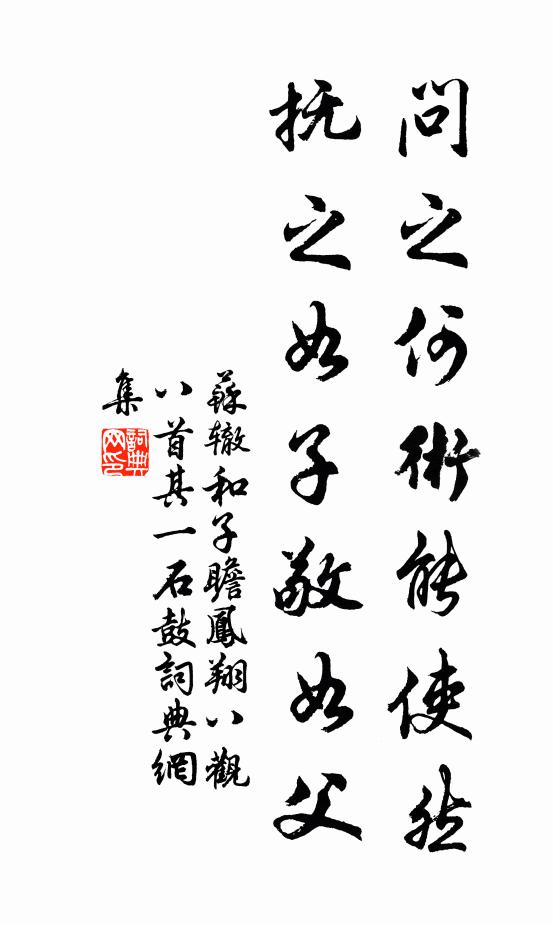 問之何術能使然
抚之如子敬如父
蘇辙和子瞻鳳翔八觀
八首其一石鼓詞典網
集
詞典
网印